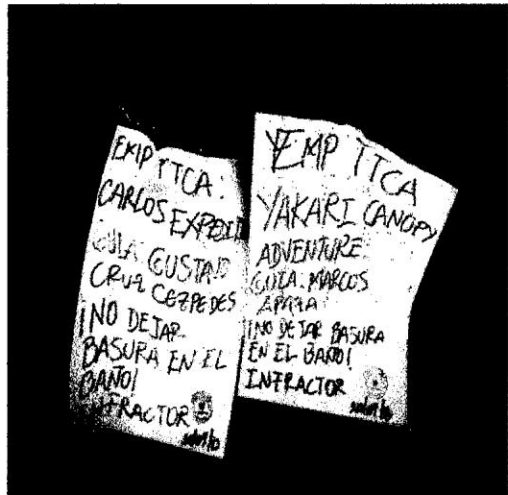 EXIP TTCA.
CARLOS EXPEDIT
GUIA GUSTAVO
CRUZ CEZPEDES
¡NO DEJAR
BASURA EN EL
BAÑO!
INFRACTOR
YEMP TTCA
YAKARI CANOPY
ADVENTURE
GUIA. MARCOS
APAZA
¡NO DEJAR BASURA
EN EL BAÑO!
INFRACTOR